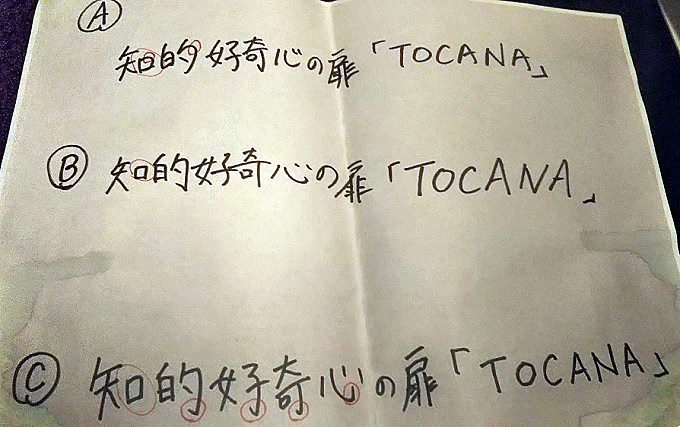 Ⓐ
知的好奇心の扉「TOCANA」
Ⓑ 知的好奇心の扉「TOCANA」
Ⓒ 知的好奇心の扉「TOCANA」